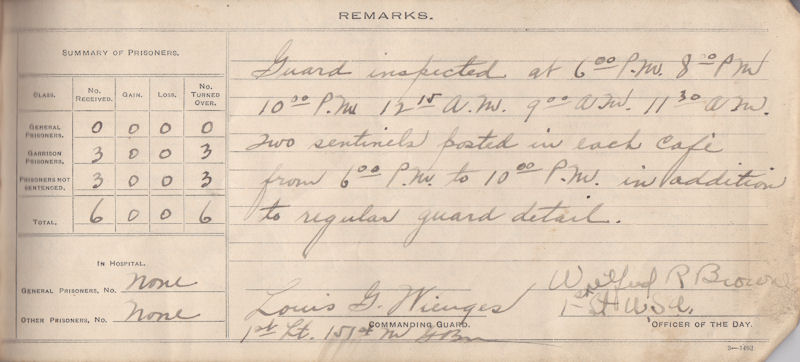 REMARKS.
SUMMARY OF PRISONERS.
CLASS. No. RECEIVED. GAIN. LOSS. No. TURNED OVER.
GENERAL PRISONERS. 0 0 0 0
GARRISON PRISONERS. 3 0 0 3
PRISONERS NOT SENTENCED. 3 0 0 3
TOTAL. 6 0 0 6
IN HOSPITAL.
GENERAL PRISONERS, No. None
OTHER PRISONERS, No. None
Guard inspected at 6 00 P.M. 8 00 P M
10 00 P.M. 12 15 A.M. 9 00 A.M. 11 30 A M.
Two sentinels posted in each café
from 6 00 P.M. to 10 00 P.M. in addition
to regular guard detail.
Louis G. Wienges
1st Lt. 151st M G Bn
COMMANDING GUARD.
R Brown
OFFICER OF THE DAY.
3—1492